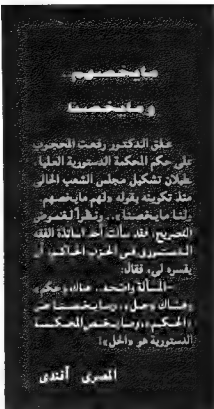 ما يخصهم..
وما يخصنا
علق الدكتور رفعت المحجوب
على حكم المحكمة الدستورية العليا
ببطلان تشكيل مجلس الشعب الحالى
منذ تكوينه بقوله «لهم ما يخصهم
ولنا ما يخصنا».. ونظراً لغموض
التصريح، فقد سألت أحد أساتذة الفقه
الدستورى فى الحزب الحاكم، أن
يفسره لى، فقال:
ـ المسألة واضحة.. هناك «حكم»
وهناك «حل».. وما يخصنا هو
«الحكم».. وما يخص المحكمة
الدستورية هو «الحل»!
المصرى أفندى